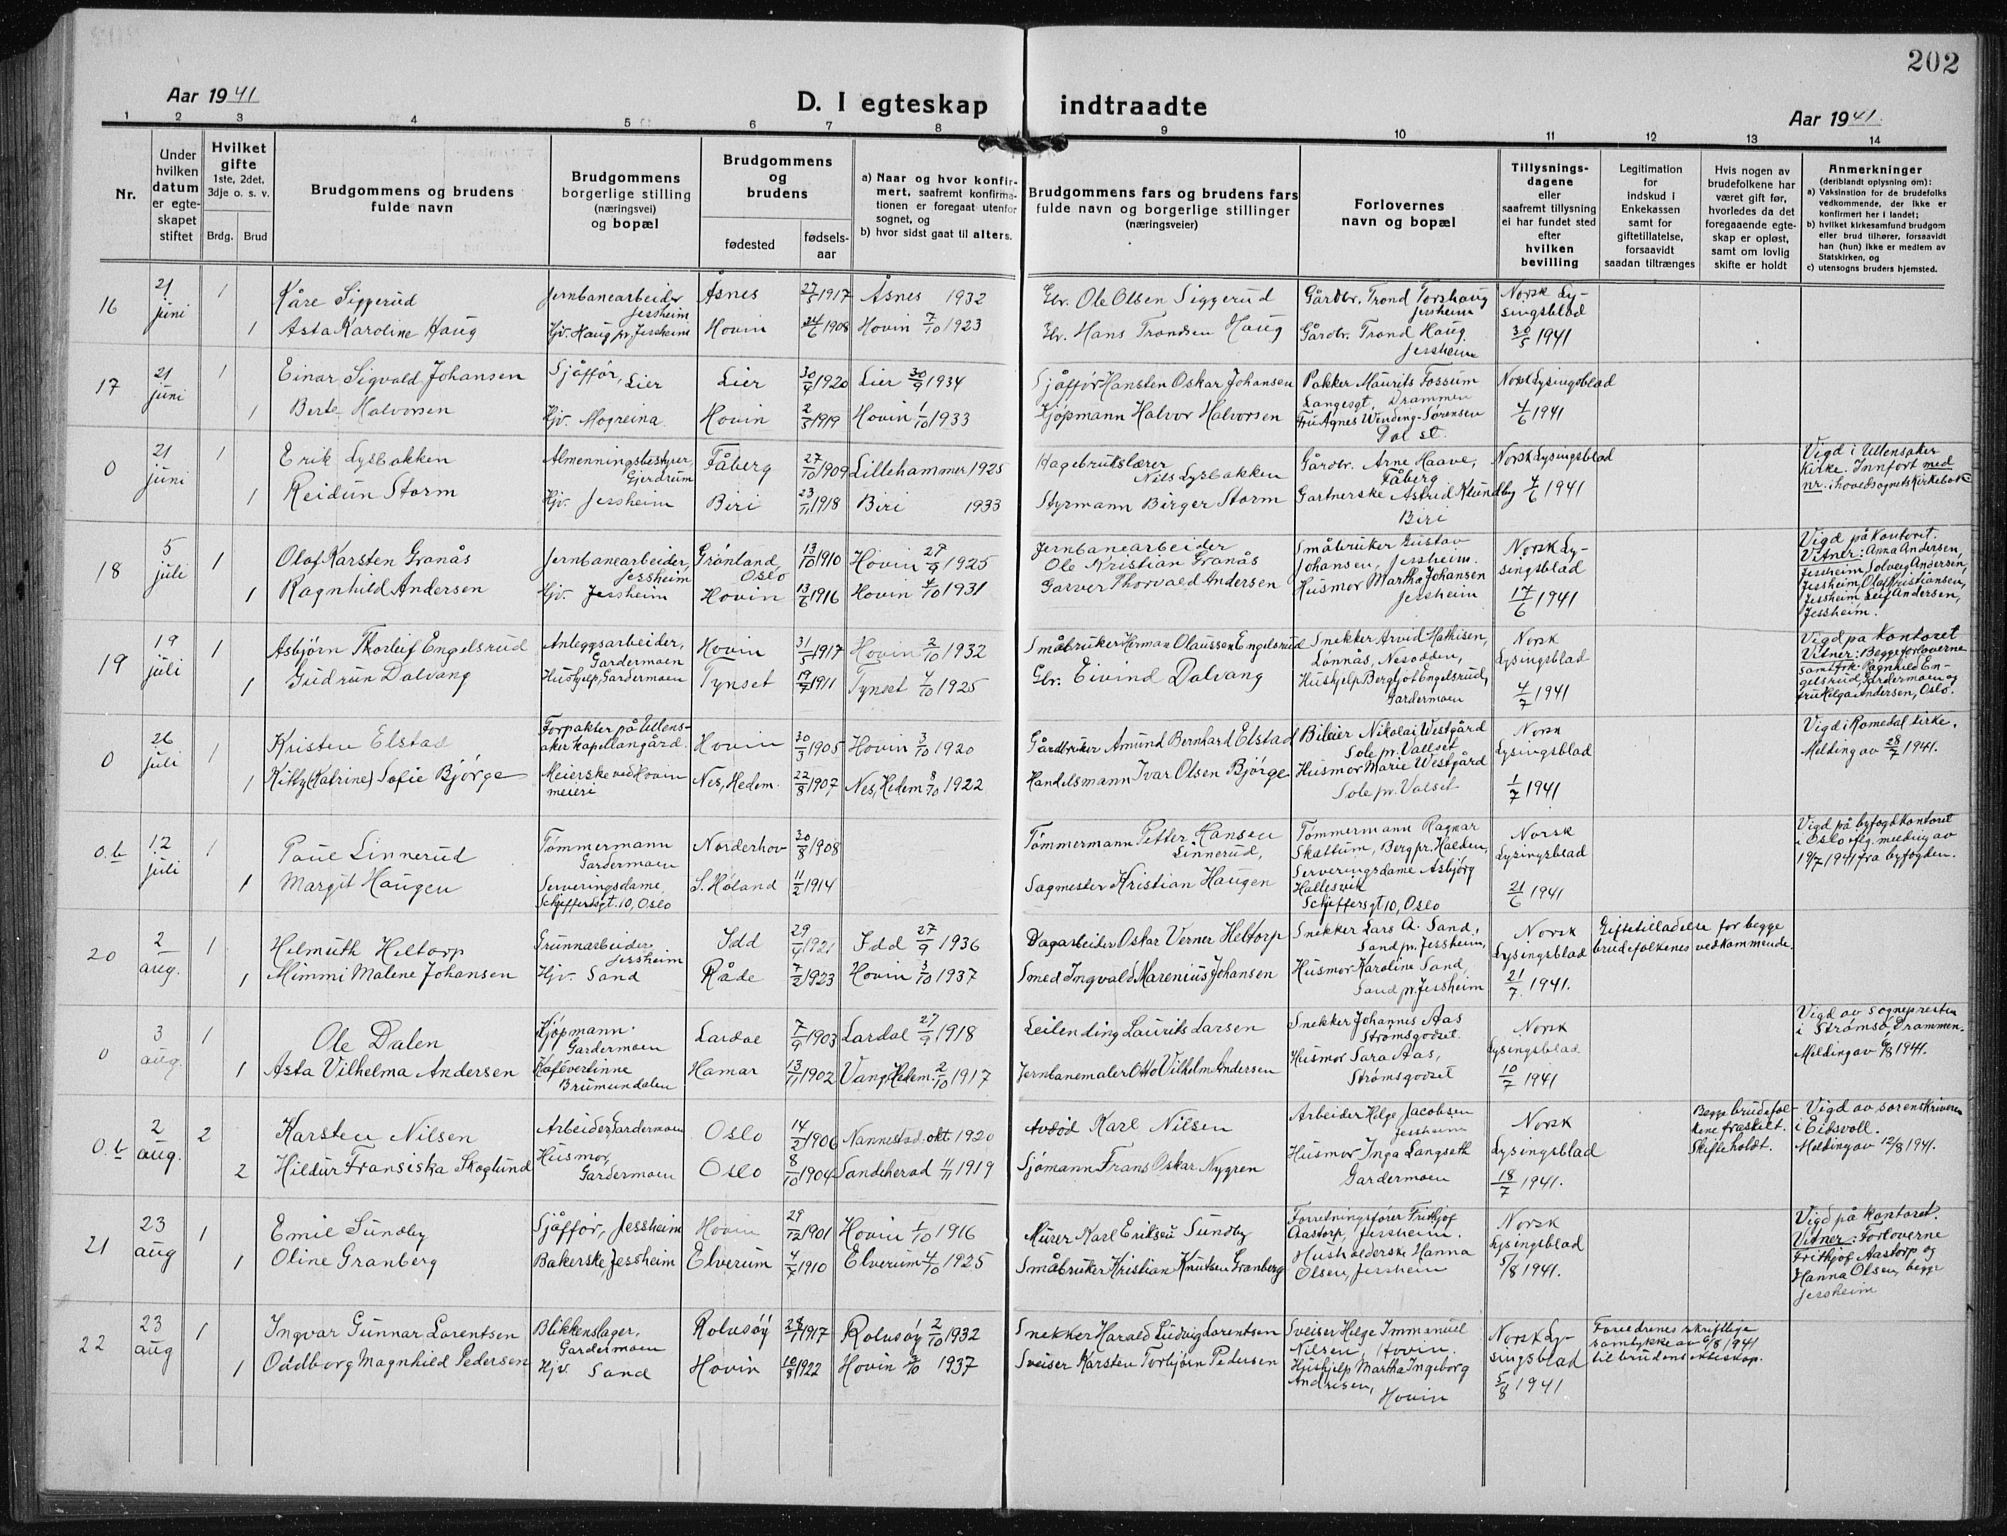 202
Aar 1941
D. I egteskap indtraadte
Aar 1941.
1 2 3 4 5 6 7 8 9 10 11 12 13 14
Nr.
Under hvilken datum er egte-skapet stiftet
Hvilket gifte 1ste, 2det, 3dje o. s. v.
Brdg. Brud
Brudgommens og brudens fulde navn
Brudgommens borgerlige stilling (næringsvei) og bopæl
Brudgommens og brudens
fødested
fødsels-aar
a) Naar og hvor konfir-mert, saafremt konfirma-tionen er foregaat utenfor sognet, og
b) hvor sidst gaat til alters.
Brudgommens fars og brudens fars fulde navn og borgerlige stillinger (næringsveier)
Forlovernes navn og bopæl
Tillysnings-dagene eller saafremt tillysning ei har fundet sted efter hvilken bevilling
Legitimation for indskud i Enkekassen samt for giftetillatelse, forsaavidt saadan tiltrænges
Hvis nogen av brudefolkene har været gift før, hvorledes da det foregaaende egte-skap er opløst, samt om lovlig skifte er holdt
Anmerkninger (deriblandt oplysning om):
a) Vaksination for de brudefolks vedkommende, der ikke er konfirmert her i landet;
b) hvilket kirkesamfund brudgom eller brud tilhører, forsaavidt han (hun) ikke er medlem av Statskirken, og
c) utensogns bruders hjemsted.
16 21 juni 1 Kåre Siggerud Jernbanearbeider Jessheim Åsnes 27/5 1917 Åsnes 1932 Gbr. Ole Olsen Siggerud Gårdbr. Trond Torshaug Jessheim Norsk Ly-singsblad 30/5 1941
1 Asta Karoline Haug Hjv. Haug pr. Jessheim Hovin 24/6 1908 Hovin 7/10 1923 Gbr. Hans Trondsen Haug Gårdbr. Trond Haug Jessheim
17 21 juni 1 Einar Sigvald Johansen Sjåffør, Lier Lier 30/4 1920 Lier 30/9 1934 Sjåffør Hansten Oskar Johansen Pakker Maurits Fossum Langesgt, Drammen Norsk Lysingsblad 4/6 1941
1 Berte Halvorsen Hjv. Mogreina Hovin 2/3 1919 Hovin 1/10 1933 Kjøpmann Halvor Halvorsen Fru Agnes Wenderg-Sørensen Dal st.
0 21 juni 1 Erik Lysbakken Almenningsbestyrer, Gjerdrum Fåberg 27/10 1909 Lillehammer 1925 Hagebrukslærer Nils Lysbakken Gårdbr. Arne Haave, Fåberg Norsk Lysingsblad 4/6 1941 Vigd i Ullensaker Kirke. Innført med nr. i hovedsognets Kirkebok
1 Reidun Storm Hjv. Jessheim Biri 23/11 1918 Biri 1933 Styrmann Birger Storm Gartnerske Astrid Klundby Biri
18 5 juli 1 Olaf Karsten Granås Jernbanearbeider, Jessheim Grønland, Oslo 13/10 1910 Hovin 27/9 1925 Jernbanearbeider Ole Kristian Granås Småbruker Gustav Johansen, Jessheim. Norsk Ly-singsblad 17/6 1941 Vigd på kontoret. Vitner: Anna Andersen, Jessheim, Solveig Andersen, Jessheim, Olaf Kristiansen, Jessheim Leif Andersen, Jessheim.
1 Ragnhild Andersen Hjv. Jessheim Hovin 13/6 1916 Hovin 4/10 1931 Garver Thorvald Andersen Husmor Martha Johansen Jessheim
19 19 juli 1 Asbjørn Thorleif Engelsrud Anleggsarbeider, Gardermoen Hovin 31/5 1917 Hovin 2/10 1932 Småbruker Herman Olausson Engelsrud Snekker Arvid Mathisen, Lønnås, Nesodden, Norsk Lysingsblad 4/7 1941 Vigd på kontoret Vitner: Begge forloverne samt frk. Ragnhild En-gelsrud, Gardermoen og fru Helga Andersen, Oslo.
1 Gudrun Dalvang Hushjelp, Gardermoen Tynset 19/7 1911 Tynset 4/10 1925 Gbr. Eivind Dalvang Hushjelp Bergljot Engelsrud, Gardermoen
0 26 juli 1 Kristen Elstad Forpakter på Ullens-aker kapellangård. Hovin 30/3 1905 Hovin 3/10 1920 Gårdbruker Amund Bernhard Elstad Bileier Nikolai Westgård Sole pr. Vallset Norsk Lysingsblad 1/7 1941 Vigd i Romedal kirke. Melding av 28/7 1941.
1 Kitty (Katrine) Sofie Bjørge Meierske ved Hovin meieri Nes, Hedem. 22/8 1907 Nes, Hedem 8/10 1922 Handelsmann Ivar Olsen Bjørge Husmor Marie Westgård Sole pr. Valset
0.b 12 juli 1 Paul Linnerud Tømmermann Gardermoen Norderhov 30/8 1908 Tømmermann Petter Hansen Linnerud, Tømmermann Ragnar Skattum, Berg pr. Halden, Norsk Lysingsblad 21/6 1941 Vigd på byfogdkontoret i Oslo iflg. melding av 19/7 1941 fra byfogden.
1 Margit Haugen Serveringsdame, Schjeffersgt. 10, Oslo S. Høland 11/2 1914 Sagmester Kristian Haugen Serveringsdame Asbjørg Hallesvik Schjeffersgt 10, Oslo
20 2 aug. 1 Helmuth Heltorp Grunnarbeider Jessheim Idd 29/4 1921 Idd 27/9 1936 Dagarbeider Oskar Verner Heltorp Snekker Lars A. Sand, Sand pr. Jessheim, Norsk Lysingsblad 21/7 1941. Giftetilladelse for begge brudefolkenes vedkommende.
1 Mimmi Malene Johansen Hjv. Sand Råde 7/2 1923 Hovin 3/10 1937 Smed Ingvald Marenius Johansen Husmor Karoline Sand, Sand pr. Jessheim
0 3 aug. 1 Ole Dalen Kjøpmann. Gardermoen Lardal 7/9 1903 Lardal 27/9 1918 Leilending Laurits Larsen Snekker Johannes Aas Strømsgodset. Norsk Lysingsblad 10/7 1941 Vigd av sognepresten i Strømsø, Drammen. Melding av 6/8 1941.
1 Asta Vilhelma Andersen Kafévertinne Brumundalen Hamar 13/11 1902 Vang, Hedem. 2/10 1917 Jernbanemaler Otto Vilhelm Andersen Husmor Sara Aas, Strømsgodset
0.b 2 aug. 2 Karsten Nilsen Arbeider, Gardermoen Oslo 14/2 1906 Nannestad okt 1920 Avdød Karl Nilsen Arbeider Helge Jacobsen Jessheim Norsk Lysingsblad 18/7 1941. Begge brudefol-kene fraskelt. Skifte holdt. Vigd av sorenskriveren i Eidsvoll. Melding av 12/8 1941.
2 Hildur Fransiska Skoglund Husmor, Gardermoen Oslo 8/10 1904 Sandeherad 11/11 1919 Sjømann Frans Oskar Nygren Husmor Inga Langseth Gardermoen
21 23 aug 1 Emil Sundby Sjåffør, Jessheim Hovin 29/12 1901 Hovin 1/10 1916 Murer Karl Eriksen Sundby Forretningsfører Frithjof Aastorp, Jessheim. Norsk Lysingsblad 5/8 1941. Vigd på kontoret. Vitner: Forloverne Frithjof Aastorp og Hanna Olsen, begge Jessheim
1 Oline Granberg Bakerske, Jessheim Elverum 4/7 1910 Elverum 4/10 1925 Småbruker Kristian Knutsen Granberg Husholderske Hanna Olsen, Jessheim
22 23 aug 1 Ingvar Gunnar Lorentsen Blikkenslager, Gardermoen Rolvsøy 28/1 1917 Rolvsøy 2/10 1932 Snekker Harald Ludvig Lorentsen Sveiser Helge Immanuel Nilsen, Hovin. Norsk Ly-singsblad 5/8 1941 Foreldrenes skriftlige samtykke av 6/8 1941 til brudens ekteskap.
1 Oddborg Magnhild Pedersen Hjv. Sand Hovin 10/8 1922 Hovin 3/10 1937 Sveiser Karsten Torbjørn Pedersen Hushjelp Martha Ingeborg Andresen, Hovin